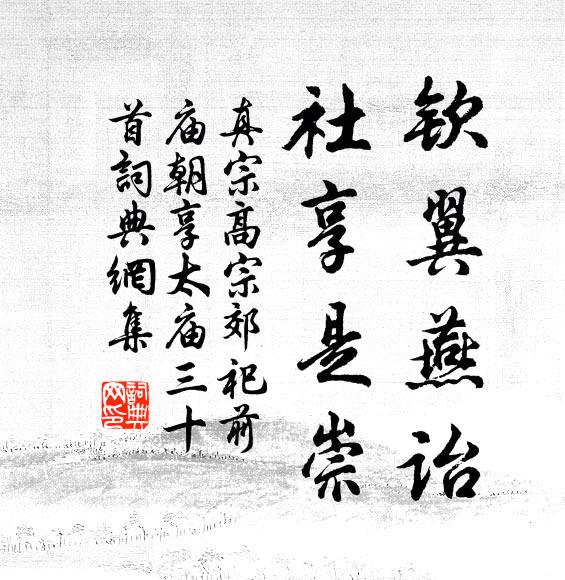 钦翼燕诒
社享是崇
真宗高宗郊祀前
庙朝享太庙三十
首詞典網集
詞典网印